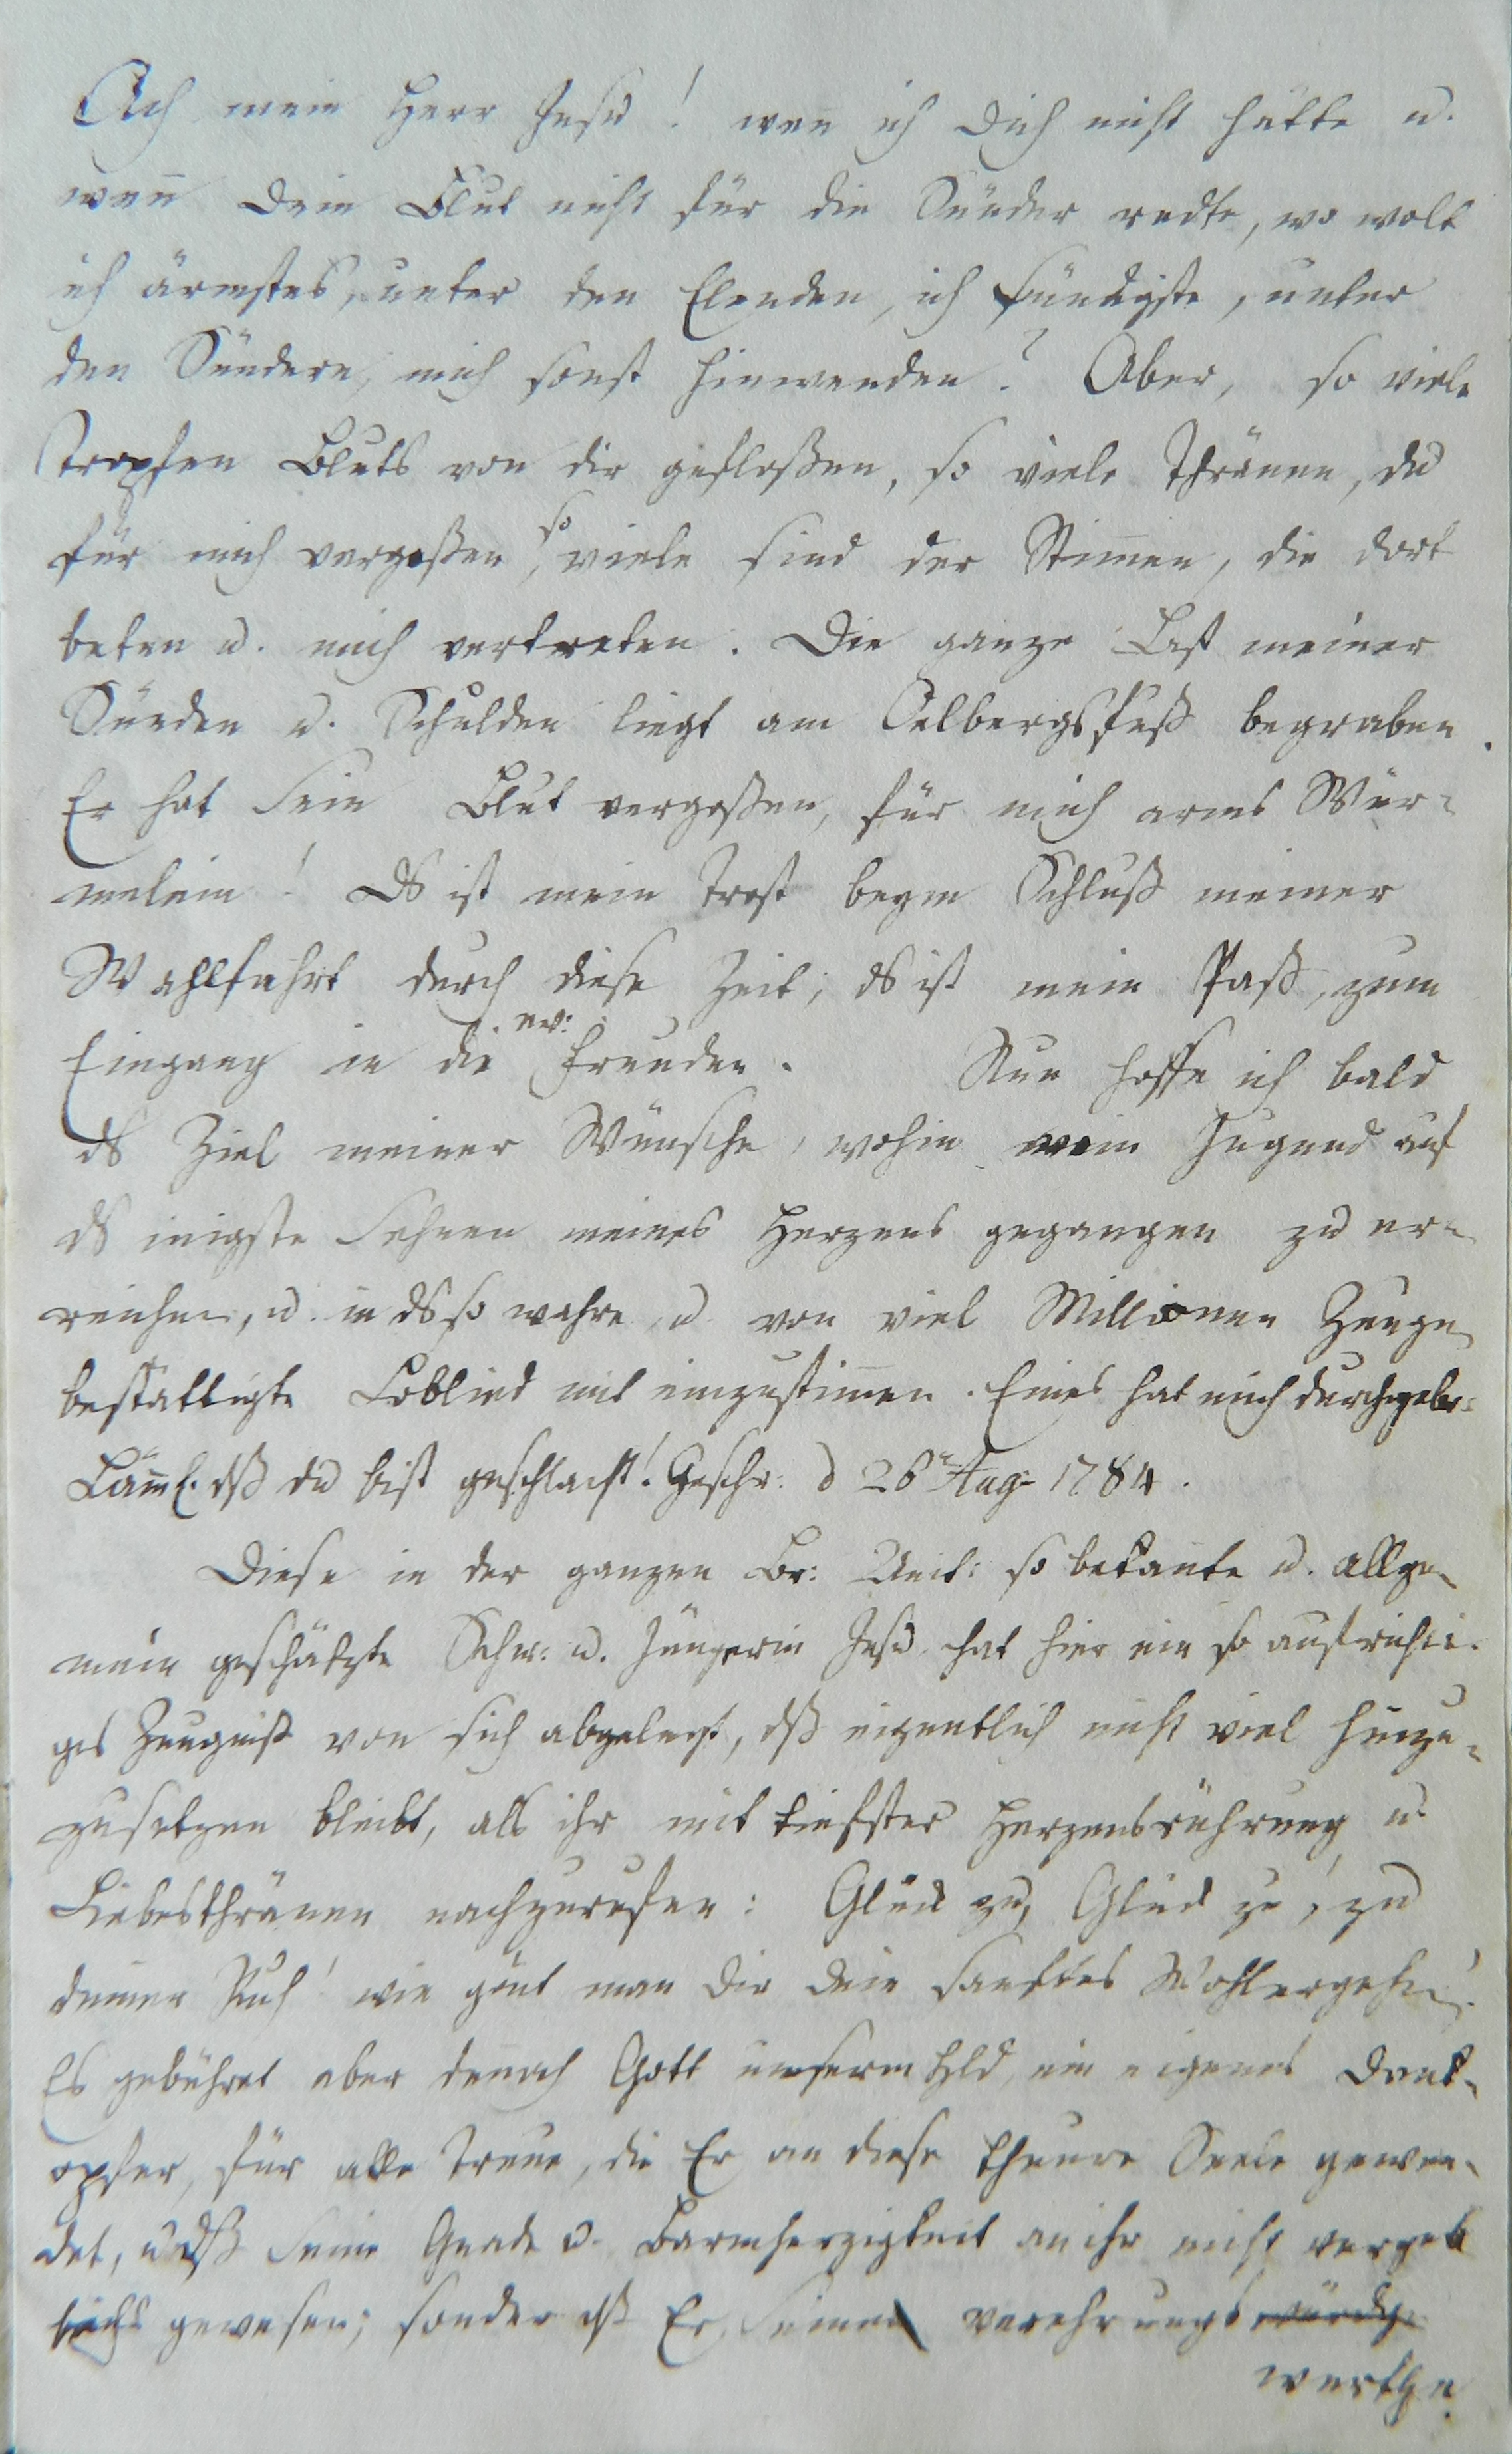 Ach mein Herr Jesu! wen̄ ich Dich nicht hätte u.
wen̄ Dein Blut nicht für die Sünder redte, wo wolt
ich ärmstes, unter den Elenden, ich sündigste, unter
den Sündern, mich sonst hinwenden? Aber, so viele
Tropfen Bluts von dir gefloßen, so viele Thränen, du
für mich vergoßen, so viele sind der Stim̄en, die dort
beten u. mich vertreten. Die ganze Last meiner
Sünden u. Schulden liegt am Oelbergsfuß begraben.
Er hat sein Blut vergoßen, für mich armes Wür-
melein! Ds ist mein Trost beym Schluß meiner
Wahlfahrt durch diese Zeit, ds ist mein Paß, zum
Eingang in die ew: Freuden. Nun hoffe ich bald
ds Ziel meiner Wünsche, wohin mein Jugend auf
ds inigste Sehnen meines Herzens gegangen zu er-
reichen, u. in ds so wahre u. von viel Millionen Zeugen
bestättigte Loblied mit einzustim̄en. Eines hat mich durchgebr:
Läm̄l. dß du bist geschlacht! Geschr: d 26ten Aug. 1784.
Diese in der ganzen Br: Unit: so bekan̄te u. allge-
mein geschäzte Schw: u. Jüngerin Jesu hat hier ein so aufrichti-
ges Zeugniß von sich abgelegt, dß eigentlich nicht viel hinzu-
zusetzen bleibt, als ihr mit tiefster Herzensrührung u.
Liebesthränen nachzurufen: Glük zu, Glük zu, zu
deiner Ruh! wie gön̄t man dir dein sanftes Wohlergehen!
Es gebühret aber den̄och Gott unserm Hld, ein eigenes Dank-
opfer, für alle Treue, die Er an diese theure Seele gewen-
det, u dß seine Gnade u. Barmherzigkeit an ihr nicht vergeb
lich gewesen; sonder dß Er seinen verehrungswürdg
werthen